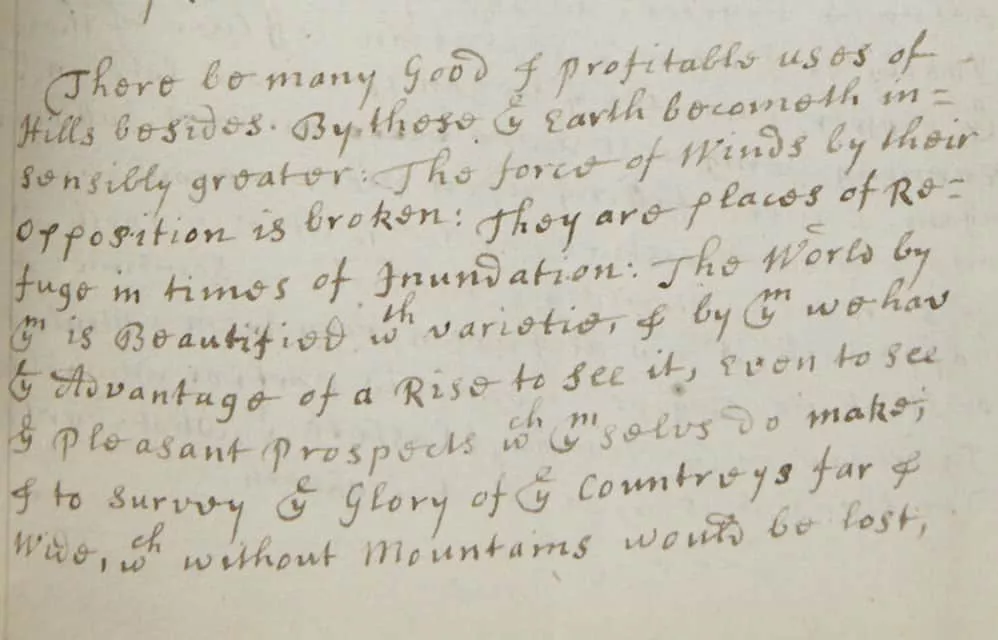 There be many Good & profitable uses of
Hills besides. By these yᵉ Earth becometh in=
sensibly greater: The force of Winds by their
opposition is broken: They are places of Re=
fuge in times of Inundation: The World by
yᵐ is Beautified wᵗʰ varietie, & by yᵐ we hav
yᵉ Advantage of a Rise to see it, Even to see
yᵉ Pleasant Prospects wᶜʰ yᵐselvs do make;
& to survey yᵉ Glory of yᵉ Countreys far &
Wide, wᶜʰ without Mountains would be lost,